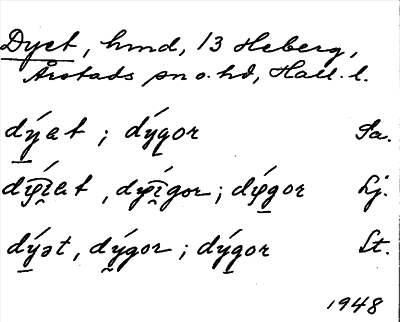 Dyet, hmd, 13 Heberg,
Årstads sn o. hd, Hall. l.
dýat ; dýgor Sa.
dýi̯at, dýi̯gor ; dýgor Lj.
dýət, dýgor ; dýgor St.
1948